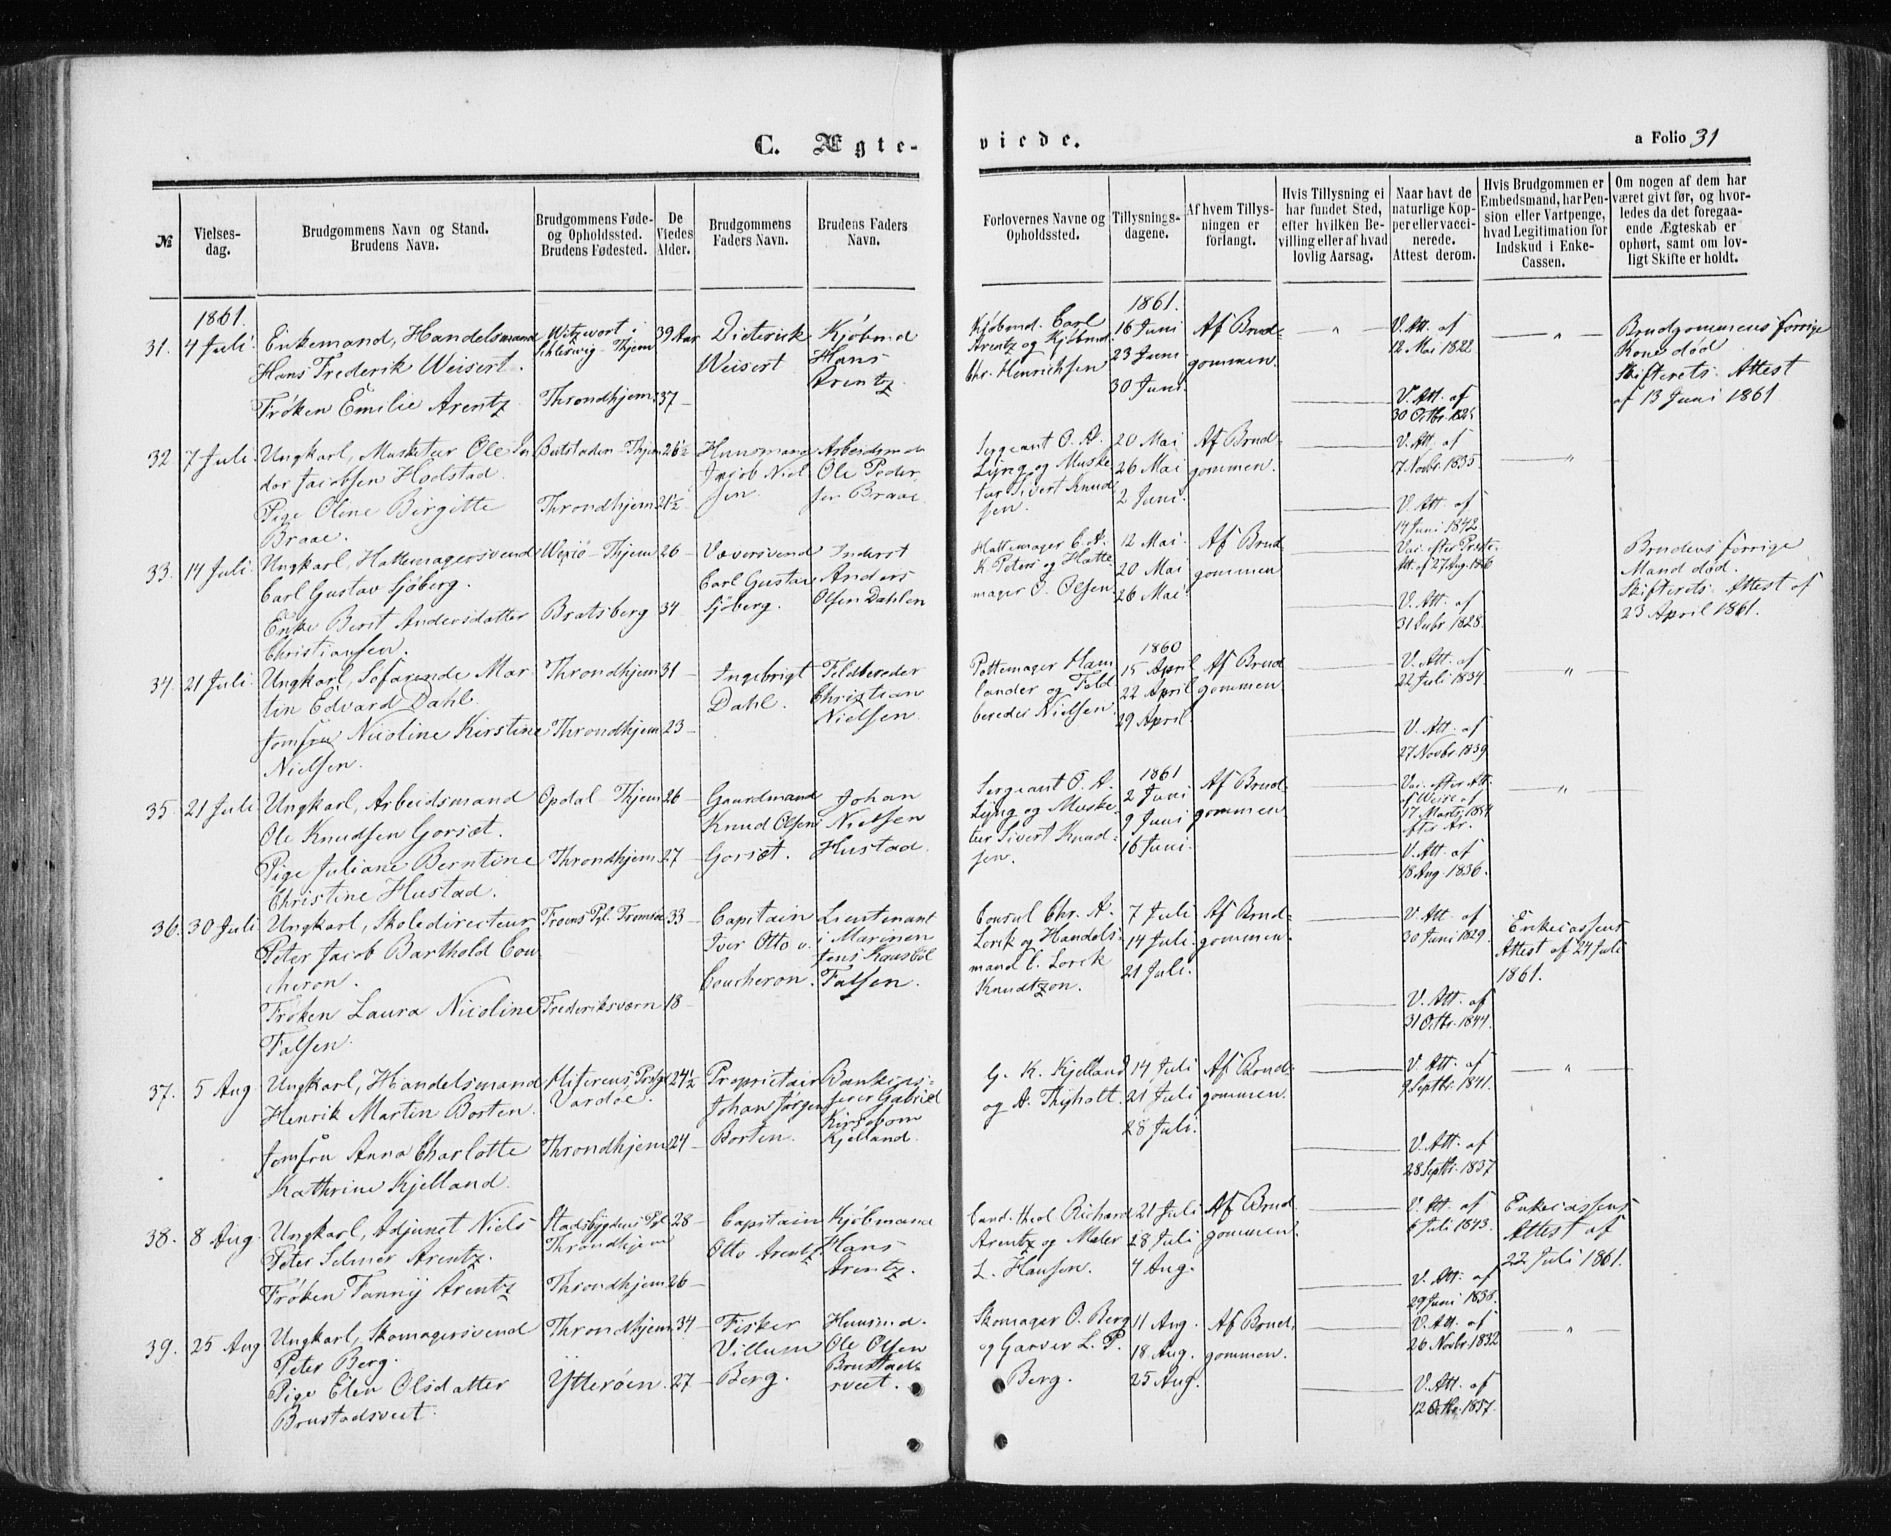 C. Ægte-
viede.
a Folio 31
№
Vielses-
dag.
Brudgommens Navn og Stand.
Brudens Navn.
Brudgommens Føde-
og Opholdssted.
Brudens Fødested.
De
Viedes
Alder.
Brudgommens
Faders Navn.
Brudens Faders
Navn.
Forlovernes Navne og
Opholdssted.
Tillysnings-
dagene.
Af hvem Tillys-
ningen er
forlangt.
Hvis Tillysning ei
har fundet Sted,
efter hvilken Be-
villing eller af hvad
lovlig Aarsag.
Naar havt de
naturlige Kop-
per eller vacci-
nerede.
Attest derom.
Hvis Brudgommen er
Embedsmand, har Pen-
sion eller Vartpenge,
hvad Legitimation for
Indskud i Enke-
Cassen.
Om nogen af dem har
været givt før, og hvor-
ledes da det foregaa-
ende Ægteskab er
ophørt, samt om lov-
ligt Skifte er holdt.
1861.
31.
4 Juli.
Enkemand, Handelsmand
Hans Frederik Weisert.
Frøken Emilie Arentz
Witzwort i
Schleswig - Thjem
Throndhjem
39 Aar
37 -
Diderik
Weisert
Kjøbmd
Hans
Arentz.
Kjøbmd. Carl
Arentz og Kjøbmd.
Chr. Henrichsen
1861.
16 Juni
23 Juni
30 Juni
Af Brud-
gommen.
V. Att. af
12 Mai 1822
V. Att. af
30 Octbr.
Brudgommens forrige
Kone død
Skifterets Attest
af 13 Juni 1861
32
7 Juli.
Ungkarl, Musketur Ole
dor Jacobsen Hodstad.
Pige Oline Birgitte
Braae.
Beitstaden - Thjem
Throndhjem
26½
21½
Huusmand
Jacob Niel
sen.
Arbeidsmd
Ole Peder
sen Braae.
Sergeant O. A.
Ljng og Muske
tur Sivert Knud
sen.
20 Mai
26 Mai
2 Juni.
Af Brud-
gommen.
V. Att. af
17 Novbr. 1835
V. Att. af
14 Juni 1842
33.
14 Juli.
Ungkarl, Hattemagersvend
Carl Gustav Sjöberg.
Enke Berit Andersdatter
Christiansen.
Wexiö - Thjem
Bratsberg
26 -
34
Væversvend
Carl Gustav
Sjöberg.
Inderst
Anders
Olsen Dahlen
Hattemager C. A.
K. Peters og Hatte
mager O. Olsen
12 Mai
20 Mai
26 Mai
Af Brud
gommen
Vac. efter Præste
Att. af 27 Aug.
V. Att. af
31 Decbr. 1828.
Brudens forrige
Mand død.
Skifterets Attest af
23 April 1861.
34
21 Juli
Ungkarl, Søfarende Mar
tin Edvard Dahl.
Jomfru Nicoline Kirstine
Nielsen.
Throndhjem
Throndhjem
31 -
23 -
Ingebrigt
Dahl.
Feldbereder
Christian
Nielsen
Pottemager Ham
lander og Feld
bereder Nielsen.
1860
15 April
22 April
29 April
Af Brud
gommen
V. Att. af
22 Juli 1834
V. Att. af
27 Novbr. 1839
35.
21 Juli
Ungkarl, Arbeidsmand
Ole Knudsen Gorsæt.
Pige Juliane Berntine
Christine Hustad.
Opdal - Thjem
Throndhjem
26 -
27 -
Gaardmand
Knud Olsen
Gorsæt.
Johan
Nielsen
Hustad.
Sergeant O. A.
Ljng og Muske
tur Sivert Knud-
sen.
1861
2 Juni
9 Juni
16 Juni.
Af Brud-
gommen
Vac. efter Att.
17 Marts
V. Att. af
18 Aug. 1836.
36.
30 Juli
Ungkarl, Skoledirecteur
Peter Jacob Barthold Cou
cheron.
Frøken Laura Nicoline
Falsen.
Froens Pgl. Tromsøe
Frederiksværn
33 -
18 -
Capitain
Iver Otto v.
Coucheron.
Lieutenant
i Marinen
Jens Kousböl
Falsen.
Consul Chr. A.
Lorck og Handels
mand C. Lorck
Knudtzon.
7 Juli
14 Juli
21 Juli.
Af Brud-
gommen.
V. Att. af
30 Juni 1829.
V. Att. af
31 Octbr. 1844.
Enkecassens
Attest af 24 Juli
1861.
37.
5 Aug
Ungkarl, Handelsmand
Henrik Martin Borten
Jomfru Anna Charlotte
Kathrine Kjelland.
Vardøe.
Throndhjem
24½
24 -
Proprietair
Johan Jørgen
Borten.
Gabriel
Kirsebom
Kjelland.
G. K. Kjelland
og A. Thyholt.
14 Juli
21 Juli
28 Juli.
Af Brud-
gommen.
V. Att. af
9 Septbr. 1841.
V. Att. af
28 Septbr. 1837
38.
8 Aug.
Ungkarl, Adjunct Niels
Peter Selmer Arentz.
Frøken Fanny Arentz
Stadsbygdens Pgl
Throndhjem
Throndhjem
28 -
26 -
Capitain
Otto Arentz.
Kjøbmand
Hans
Arentz.
Cand. theol Richard
Arentz og Maler
L. Hansen.
21 Juli
28 Juli
4 Aug.
Af Brud
gommen.
V. Att. af
6 Juli 1843.
V. Att. af
29 Juni 1838.
Enkecassens
Attest af
22 Juli 1861.
39.
25 Aug
Ungkarl, Skomagersvend
Peter Berg.
Pige Elen Olsdatter
Brustadsveet.
Throndhjem
Ytterøen.
34 -
27 -
Fisker
Villum
Berg.
Huusmd.
Ole Olsen
Brustads
veet.
Skomager O. Berg
og Garver L. P.
Berg.
11 Aug.
18 Aug.
25 Aug.
Af Brud.
gommen.
V. Att. af
26 Novbr. 1832
V. Att. af
12 Octbr. 1837.